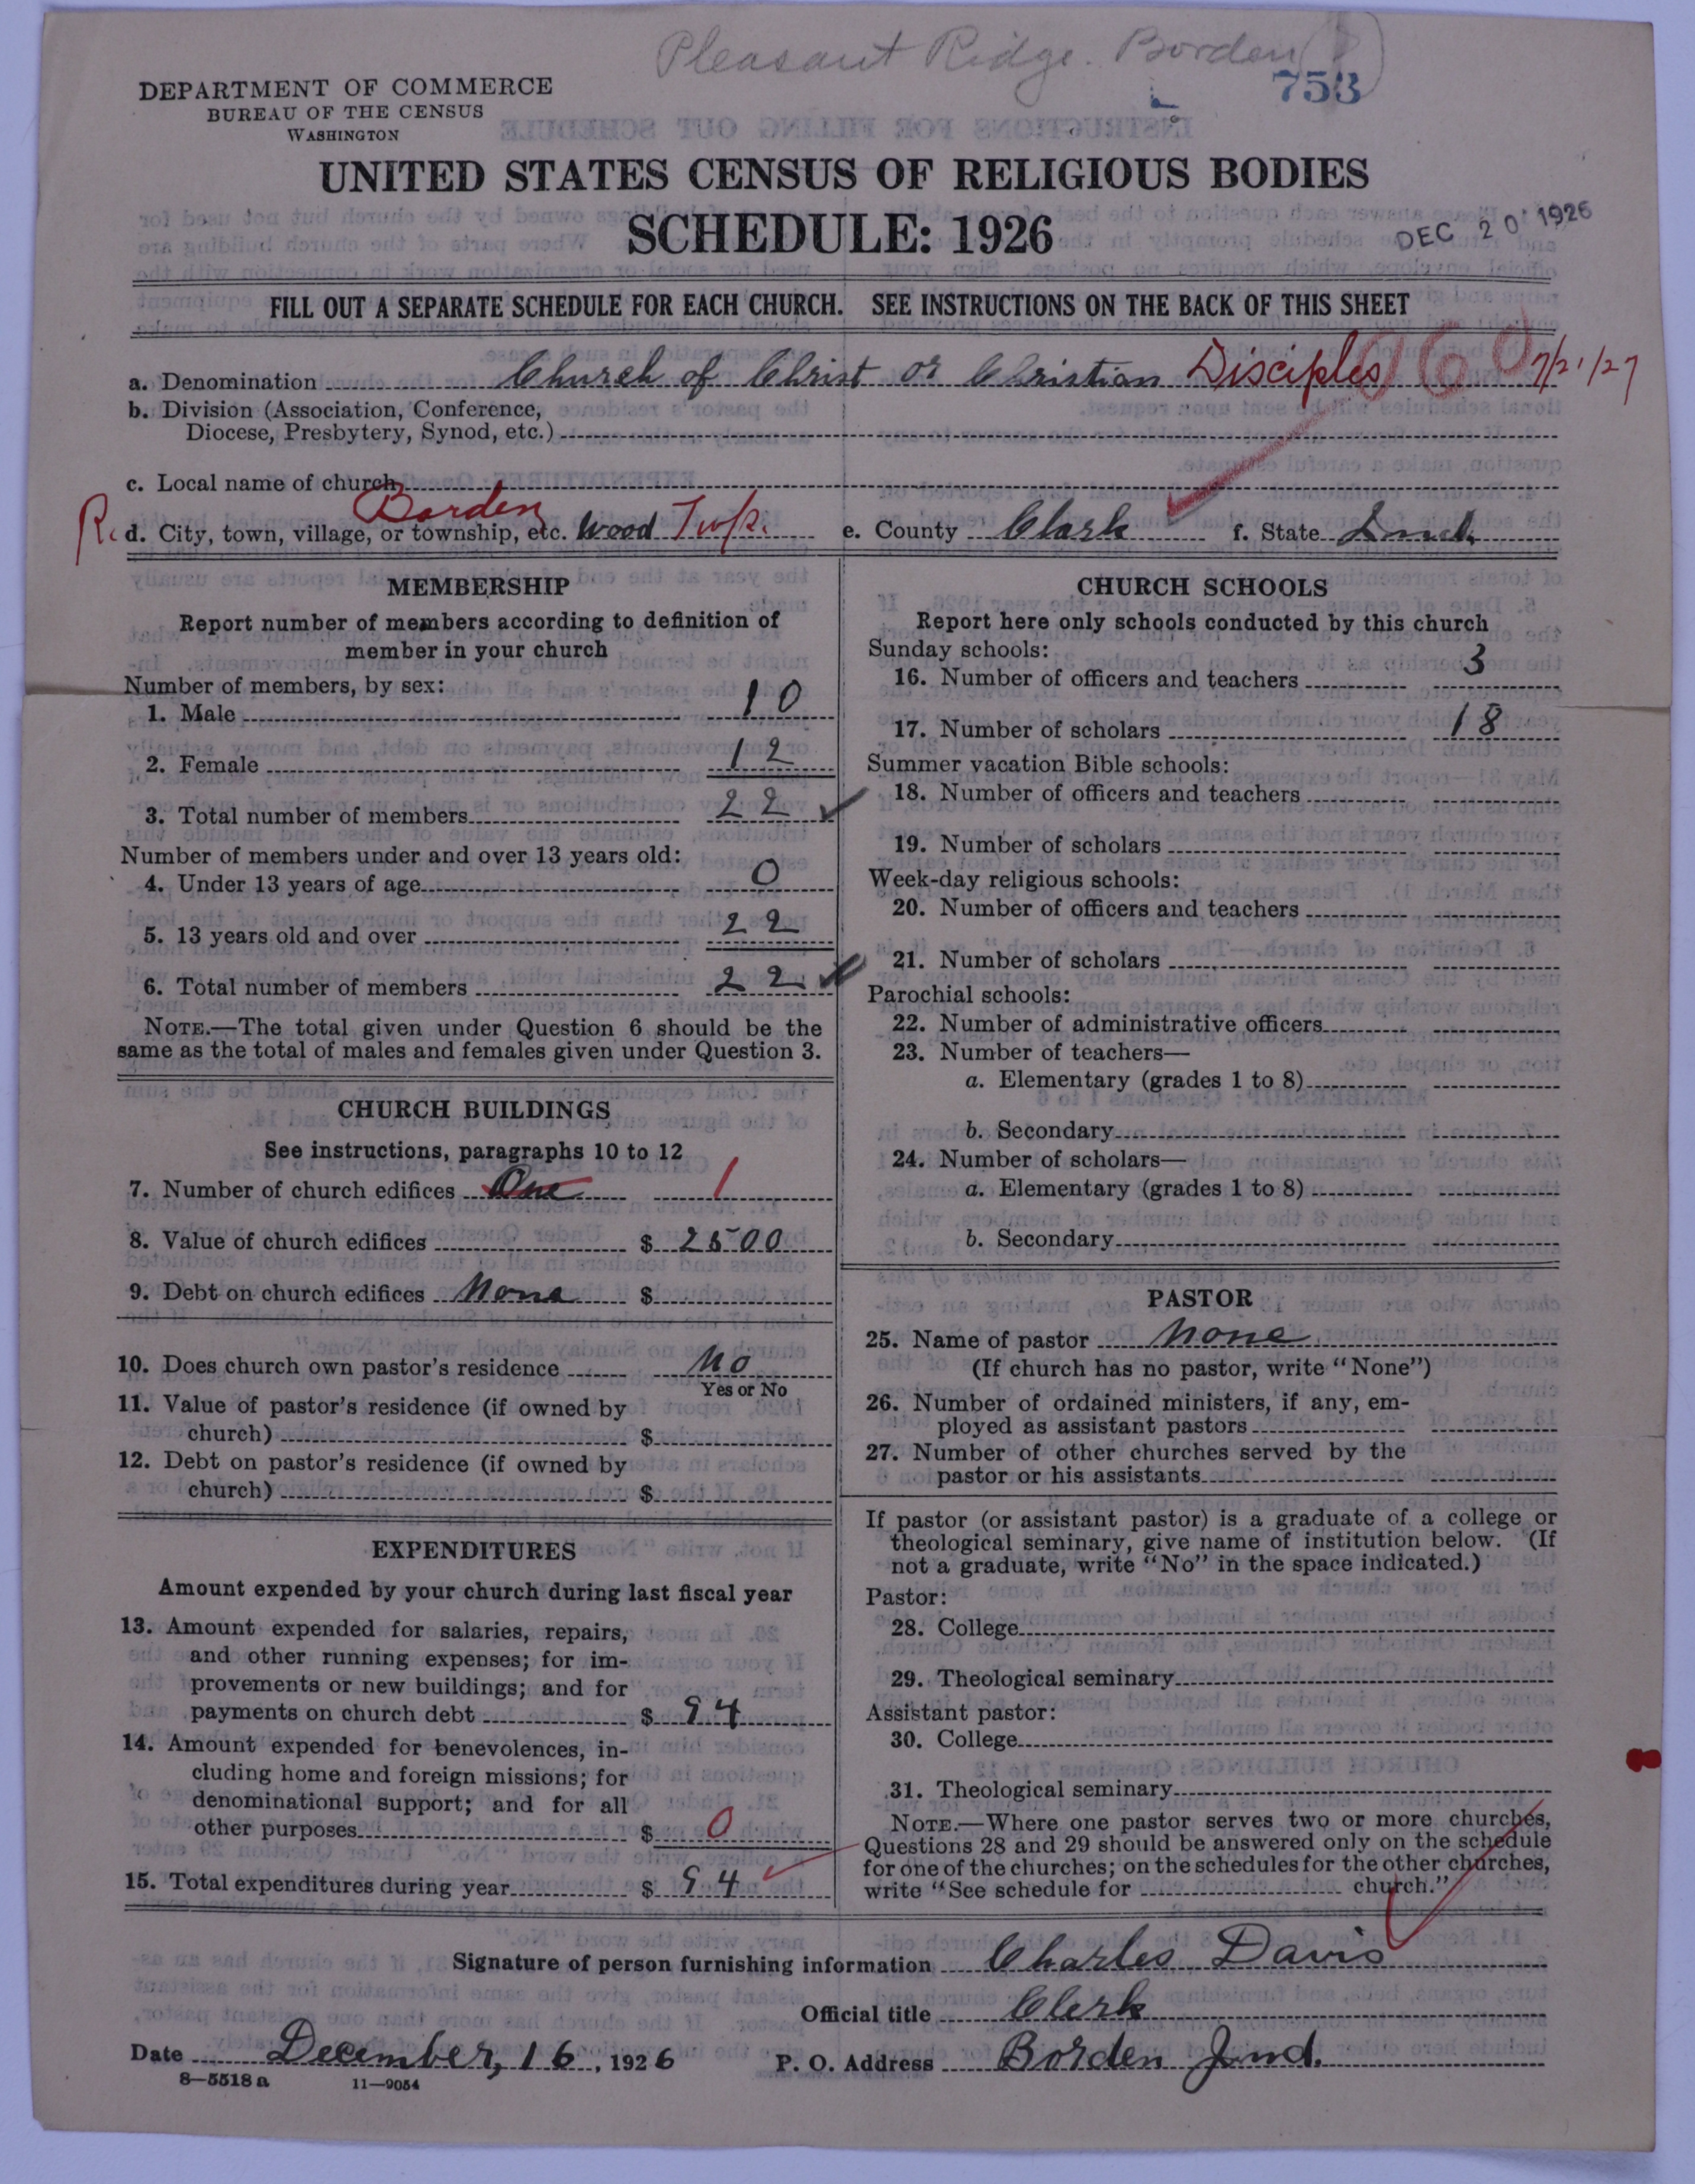 Pleasant Ridge. Borden
753
DEPARTMENT OF COMMERCE
BUREAU OF THE CENSUS
WASHINGTON
UNITED STATES CENSUS OF RELIGIOUS BODIES
SCHEDULE: 1926
DEC 20 1926
FILL OUT A SEPARATE SCHEDULE FOR EACH CHURCH. SEE INSTRUCTIONS ON THE BACK OF THIS SHEET
a. Denomination Church of Christ or Christian Disciples 960 7/21/27
b. Division (Association, Conference,
Diocese, Presbytery, Synod, etc.)
c. Local name of church
Borden
R. d. City, town, village, or township, etc. Wood Twp. e. County Clark f. State Ind.
MEMBERSHIP
Report number of members according to definition of
member in your church
Number of members, by sex:
1. Male 10
2. Female 12
3. Total number of members 22
Number of members under and over 13 years old:
4. Under 13 years of age 0
5. 13 years old and over 22
6. Total number of members 22
NOTE.—The total given under Question 6 should be the
same as the total of males and females given under Question 3.
CHURCH BUILDINGS
See instructions, paragraphs 10 to 12
7. Number of church edifices One 1
8. Value of church edifices $ 2500
9. Debt on church edifices None $
10. Does church own pastor's residence No
Yes or No
11. Value of pastor's residence (if owned by
church) $
12. Debt on pastor's residence (if owned by
church) $
EXPENDITURES
Amount expended by your church during last fiscal year
13. Amount expended for salaries, repairs,
and other running expenses; for im-
provements or new buildings; and for
payments on church debt $ 94
14. Amount expended for benevolences, in-
cluding home and foreign missions; for
denominational support; and for all
other purposes $ 0
15. Total expenditures during year $ 94
CHURCH SCHOOLS
Report here only schools conducted by this church
Sunday schools:
16. Number of officers and teachers 3
17. Number of scholars 18
Summer vacation Bible schools:
18. Number of officers and teachers
19. Number of scholars
Week-day religious schools:
20. Number of officers and teachers
21. Number of scholars
Parochial schools:
22. Number of administrative officers
23. Number of teachers—
a. Elementary (grades 1 to 8)
b. Secondary
24. Number of scholars—
a. Elementary (grades 1 to 8)
b. Secondary
PASTOR
25. Name of pastor None
(If church has no pastor, write "None")
26. Number of ordained ministers, if any, em-
ployed as assistant pastors
27. Number of other churches served by the
pastor or his assistants
If pastor (or assistant pastor) is a graduate of a college or
theological seminary, give name of institution below. (If
not a graduate, write "No" in the space indicated.)
Pastor:
28. College
29. Theological seminary
Assistant pastor:
30. College
31. Theological seminary
NOTE.—Where one pastor serves two or more churches,
Questions 28 and 29 should be answered only on the schedule
for one of the churches; on the schedules for the other churches,
write "See schedule for church."
Signature of person furnishing information Charles Davis
Official title Clerk
Date December, 16, 1926 P. O. Address Borden Ind.
8—5518 a 11—9054